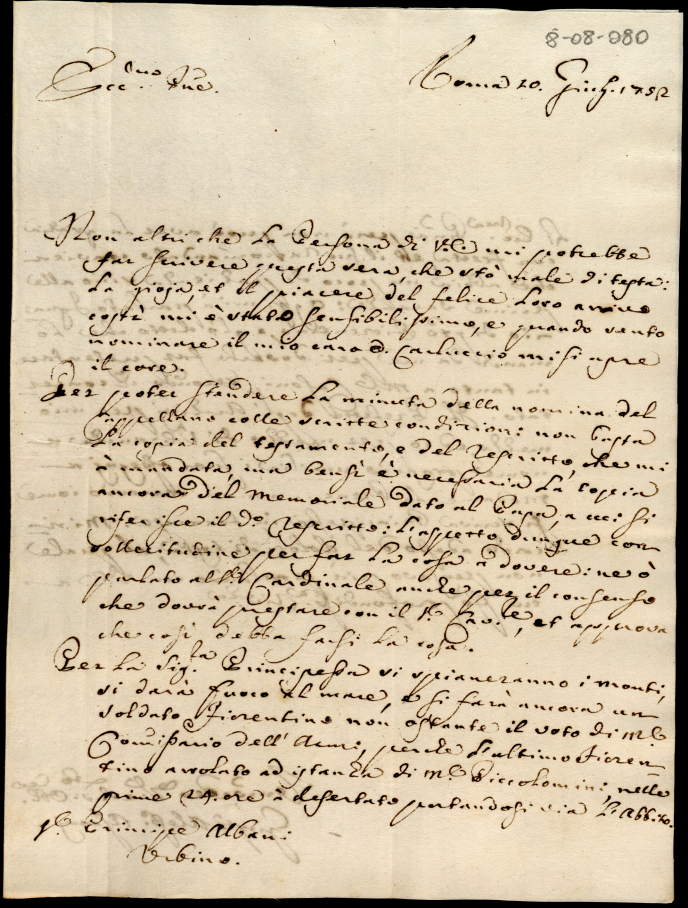 8-08-080
Ecc.mo Pne. Roma 20. Giug. 1752
Non altri che la Persona di V.E. mi potrebbe
far scrivere questa sera, che stò male di testa:
La gioja, et il piacere del felice loro arrivo
costà mi è stato sensibilissimo, e quando sento
nominare il mio caro D. Carluccio mi si apre
il core.
Per poter stendere la minuta della nomina del
Cappellano colle scritte condizioni non basta
La copia del testamento, e del rescritto, che mi
à mandata, ma bensì è necessaria la copia
ancora del Memoriale dato al Papa, a cui si
riferisce il d.o rescritto: L'aspetto dunque con
sollecitudine per far la cosa a dovere: ne ò
parlato all' Cardinale anche per il consenso
che dovrà prestare con il Cav.re, et approva
che così debba farsi la cosa.
Per la Sig.ra Principessa si spianeranno i monti,
si darà fuoco al mare, e si farà ancora un
soldato Fiorentino non ostante il voto di M.r
Comissario dell' Armi, perche l'ultimo Fioren-
tino arrolato ad istanza di M.r Piccolomini, nelle
prime 24. ore à desertato portandosi via l'Abbito.
Principe Albani
Urbino.